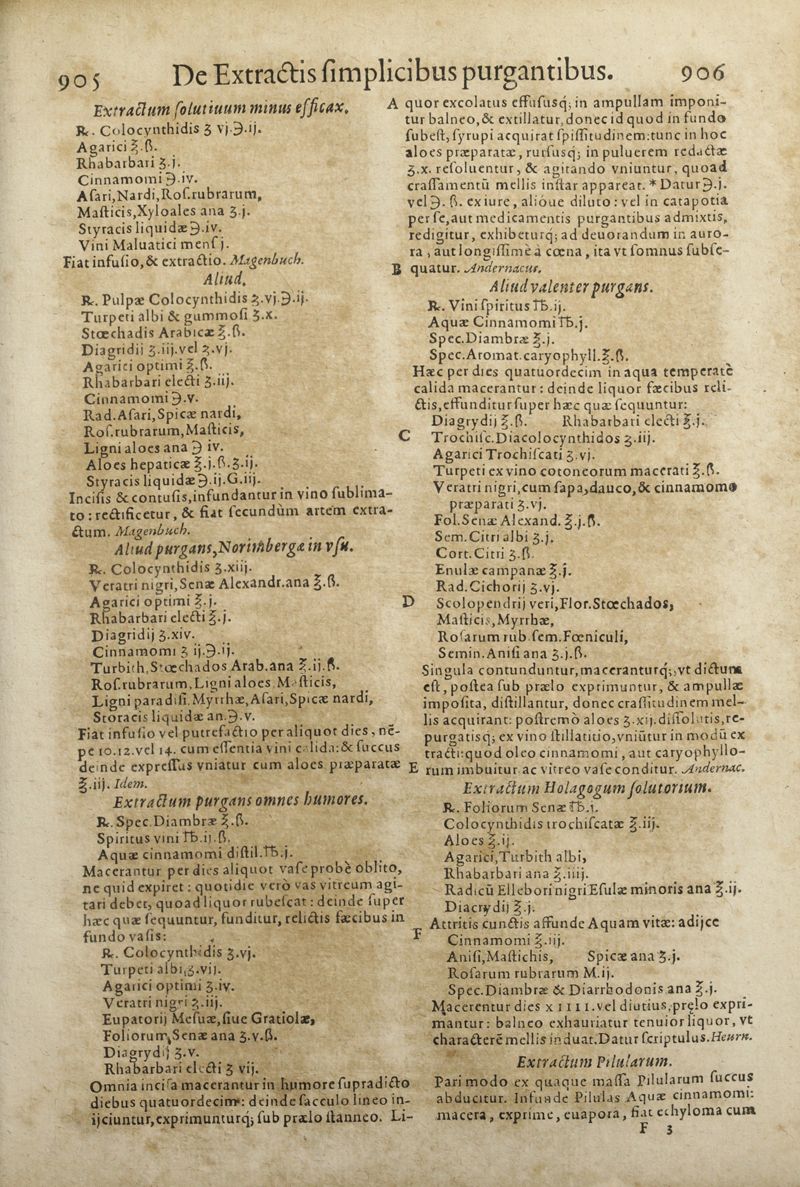 905 De Extractis simplicibus purgantibus. 906
Extractum solutiuum minus efficax.
℞. Colocynthidis ʒ vj.℈.ij.
Agarici ℥.ß.
Rhabarbari ʒ.j.
Cinnamomi ℈.iv.
Asari,Nardi,Ros.rubrarum,
Masticis,Xyloales ana ʒ.j.
Styracis liquidæ ℈.iv.
Vini Maluatici mens j.
Fiat infusio,& extractio. Magenbuch.
Aliud.
℞. Pulpæ Colocynthidis ʒ.vj.℈.ij.
Turpeti albi & gummosi ʒ.x.
Stœchadis Arabicæ ℥.ß.
Diagridii ʒ.iij.vel ʒ.vj.
Agarici optimi ℥.ß.
Rhabarbari electi ʒ.iij.
Cinnamomi ℈.v.
Rad.Asari,Spicæ nardi,
Ros.rubrarum,Masticis,
Ligni aloes ana ℈ iv.
Aloes hepaticæ ℥.j.ß.ʒ.ij.
Styracis liquidæ ℈.ij.G.iij.
Incisis & contusis,infundantur in vino sublima-
to : rectificetur, & fiat secundùm artem extra-
ctum. Magenbuch.
Aliud purgans,Norimbergæ in vsu.
℞. Colocynthidis ʒ.xiij.
Veratri nigri,Senæ Alexandr.ana ℥.ß.
Agarici optimi ℥.j.
Rhabarbari electi ℥.j.
Diagridij ʒ.xiv.
Cinnamomi ʒ ij.℈.ij.
Turbith,Stœchados Arab.ana ℥.ij.ß.
Ros.rubrarum,Ligni aloes Masticis,
Ligni paradisi,Myrrhæ,Asari,Spicæ nardi,
Storacis liquidæ an.℈.v.
Fiat infusio vel putrefactio per aliquot dies, ne-
pe 10.12.vel 14. cum essentia vini calida:& succus
deinde expressus vniatur cum aloes præparatæ
℥.iij. Idem.
Extractum purgans omnes humores.
℞. Spec.Diambræ ℥.ß.
Spiritus vini ℔.ij.ß.
Aquæ cinnamomi distil.℔.j.
Macerantur per dies aliquot vase probè oblito,
ne quid expiret : quotidie verò vas vitreum agi-
tari debet, quoad liquor rubescat : deinde super
hæc quæ sequuntur, funditur, relictis fæcibus in
fundo vasis:
℞. Colocynthidis ʒ.vj.
Turpeti albi,ʒ.vij.
Agarici optimi ʒ.iv.
Veratri nigri ʒ.iij.
Eupatorij Mesuæ,siue Gratiolæ,
Foliorum,Senæ ana ʒ.v.ß.
Diagrydij ʒ.v.
Rhabarbari electi ʒ vij.
Omnia incisa macerantur in humore supradicto
diebus quatuordecim: deinde sacculo lineo in-
ijciuntur,exprimunturq; sub prælo stanneo. Li-
A quor excolatus effususq; in ampullam imponi-
tur balneo,& extillatur, donec id quod in fundo
subest, syrupi acquirat spissitudinem:tunc in hoc
aloes præparatæ, rursusq; in puluerem redactæ
ʒ.x. resoluentur, & agitando vniuntur, quoad
crassamentū mellis instar appareat. * Datur ℈.j.
vel ℈. ß. ex iure, alioue diluto : vel in catapotia
per se,aut medicamentis purgantibus admixtis,
redigitur, exhibeturq; ad deuorandum in auro-
ra , aut longissimè à cœna , ita vt somnus subse-
B quatur. Andernacus.
Aliud valenter purgans.
℞. Vini spiritus ℔.ij.
Aquæ Cinnamomi ℔.j.
Spec.Diambræ ℥.j.
Spec.Aromat.caryophyll.℥.ß.
Hæc per dies quatuordecim in aqua temperatè
calida macerantur : deinde liquor fæcibus reli-
ctis,effunditur super hæc quæ sequuntur:
Diagrydij ℥.ß. Rhabarbari electi ℥.j.
C Trochisc.Diacolocynthidos ʒ.iij.
Agarici Trochiscati ʒ.vj.
Turpeti ex vino cotoneorum macerati ℥.ß.
Veratri nigri,cum sapa,dauco,& cinnamomo
præparati ʒ.vj.
Fol.Senæ Alexand. ℥.j.ß.
Sem.Citri albi ʒ.j.
Cort.Citri ʒ.ß.
Enulæ campanæ ℥.j.
Rad.Cichorij ʒ.vj.
D Scolopendrij veri,Flor.Stœchados,
Masticis,Myrrhæ,
Rosarum rub sem.Fœniculi,
Semin.Anisi ana ʒ.j.ß.
Singula contunduntur,maceranturq;,vt dictum
est, postea sub prælo exprimuntur, & ampullæ
imposita, distillantur, donec crassitudinem mel-
lis acquirant: postremò aloes ʒ.xij.dissolutis,re-
purgatisq; ex vino stillatitio,vniūtur in modū ex
tracti:quod oleo cinnamomi , aut caryophyllo-
E rum imbuitur ac vitreo vase conditur. Andernac.
Extractum Holagogum solutorium.
℞. Foliorum Senæ ℔.j.
Colocynthidis trochiscatæ ℥.iij.
Aloes ℥.ij.
Agarici,Turbith albi,
Rhabarbari ana ℥.iiij.
Radicū Ellebori nigri Esulæ minoris ana ℥.ij.
Diacrydij ℥.j.
Attritis cunctis affunde Aquam vitæ: adijce
F Cinnamomi ℥.iij.
Anisi,Mastichis, Spicæ ana ʒ.j.
Rosarum rubrarum M.ij.
Spec.Diambræ & Diarrhodonis ana ℥.j.
Macerentur dies xIIII.vel diutius,prelo expri-
mantur : balneo exhauriatur tenuior liquor, vt
characterē mellis induat.Datur scriptulus.Heurn.
Extractum Pilularum.
Pari modo ex quaque massa Pilularum succus
abducitur. Infunde Pilulas Aquæ cinnamomi:
macera, exprime, euapora, fiat echyloma cum
F 3